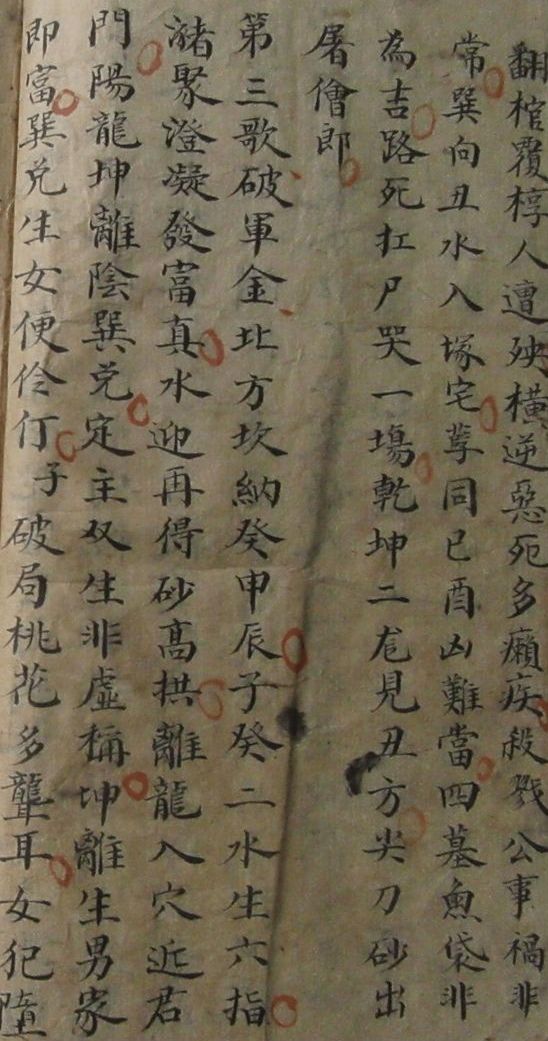 翻棺覆椁人遭殃横逆惡死多癩疾殺戮公事禍非
常巽向丑水入塚宅莩同巳酉凶難當四墓魚袋非
為吉路死扛尸哭一塲乾坤二龙見丑方尖刀砂出
屠儈郎
第三歌破軍金北方坎納癸申辰子癸二水生六指
瀦聚澄凝發富真水迎再得砂高拱離龍入穴近君
門陽龍坤離陰巽兑定主双生非虛稱坤離生男家
即富巽兑生女便伶仃子破局桃花多聾耳女犯墮